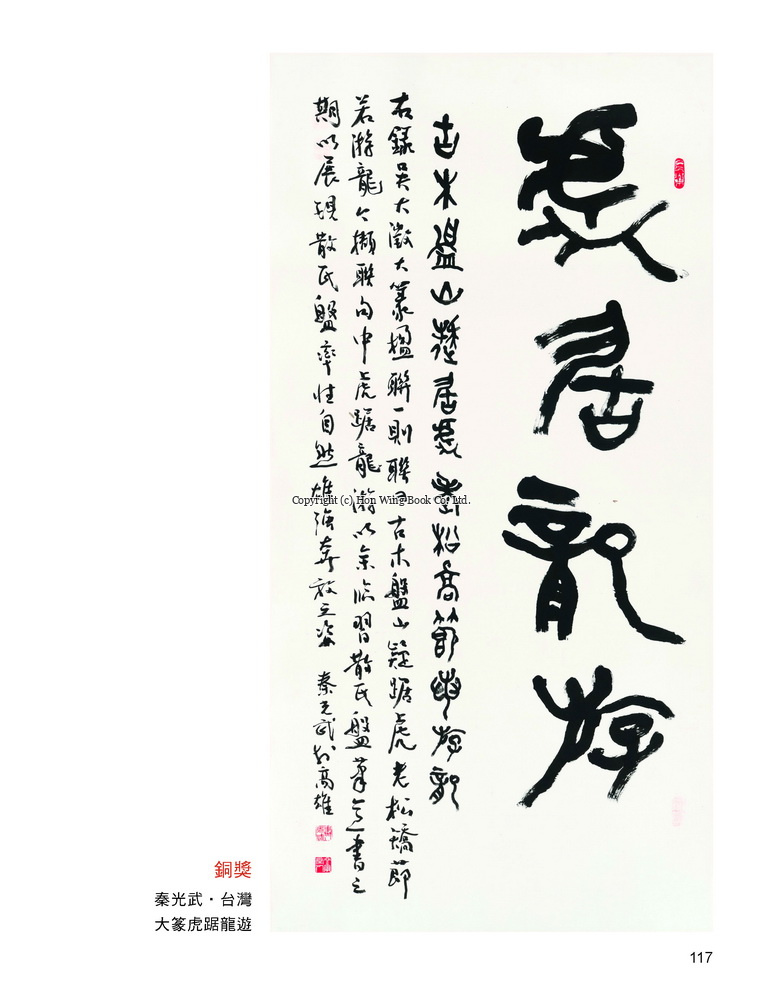 虎居龍斿
古木盤山疑居虎老松高節若斿龍
右錄吳大澂大篆楹聯一則聯曰古木盤山疑踞虎老松矯節
若游龍今擷聯句中虎踞龍游以余臨習散氏盤筆意書之
期以展現散氏盤率性自然雄強奔放之姿 秦光武於高雄
Copyright (c) Hon Wing Book Co. Ltd.
銅獎
秦光武・台灣
大篆虎踞龍遊
117